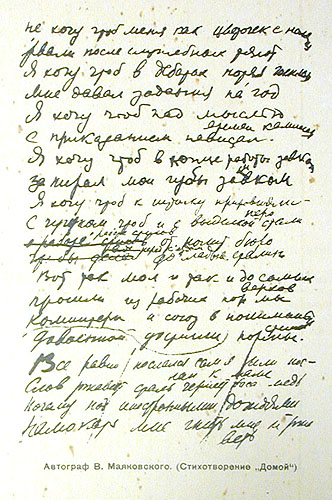 не хочу чтоб меня как цветочек с полян
рвали после служебных тягот
Я хочу чтоб в дебатах потел Госплан
мне давая задания на год
Я хочу чтоб над мыслью
времен комиссар
с приказанием нависал
Я хочу чтоб в конце работы завком
запирал мои губы замком
Я хочу чтоб к штыку приравняли
перо
С чугуном чтоб и с выделкой стали
о работе стихов
от полит бюро
чтобы делал доклады Сталин
Вот так мол и так и до самых
верхов
прошли из рабочих нор мы
в понимании
стихов
довоенной нормы
Все равно
сталь чернеет
Почему под иностранными дождями
мне гнить мне
Автограф В. Маяковского. (Стихотворение „Домой“)